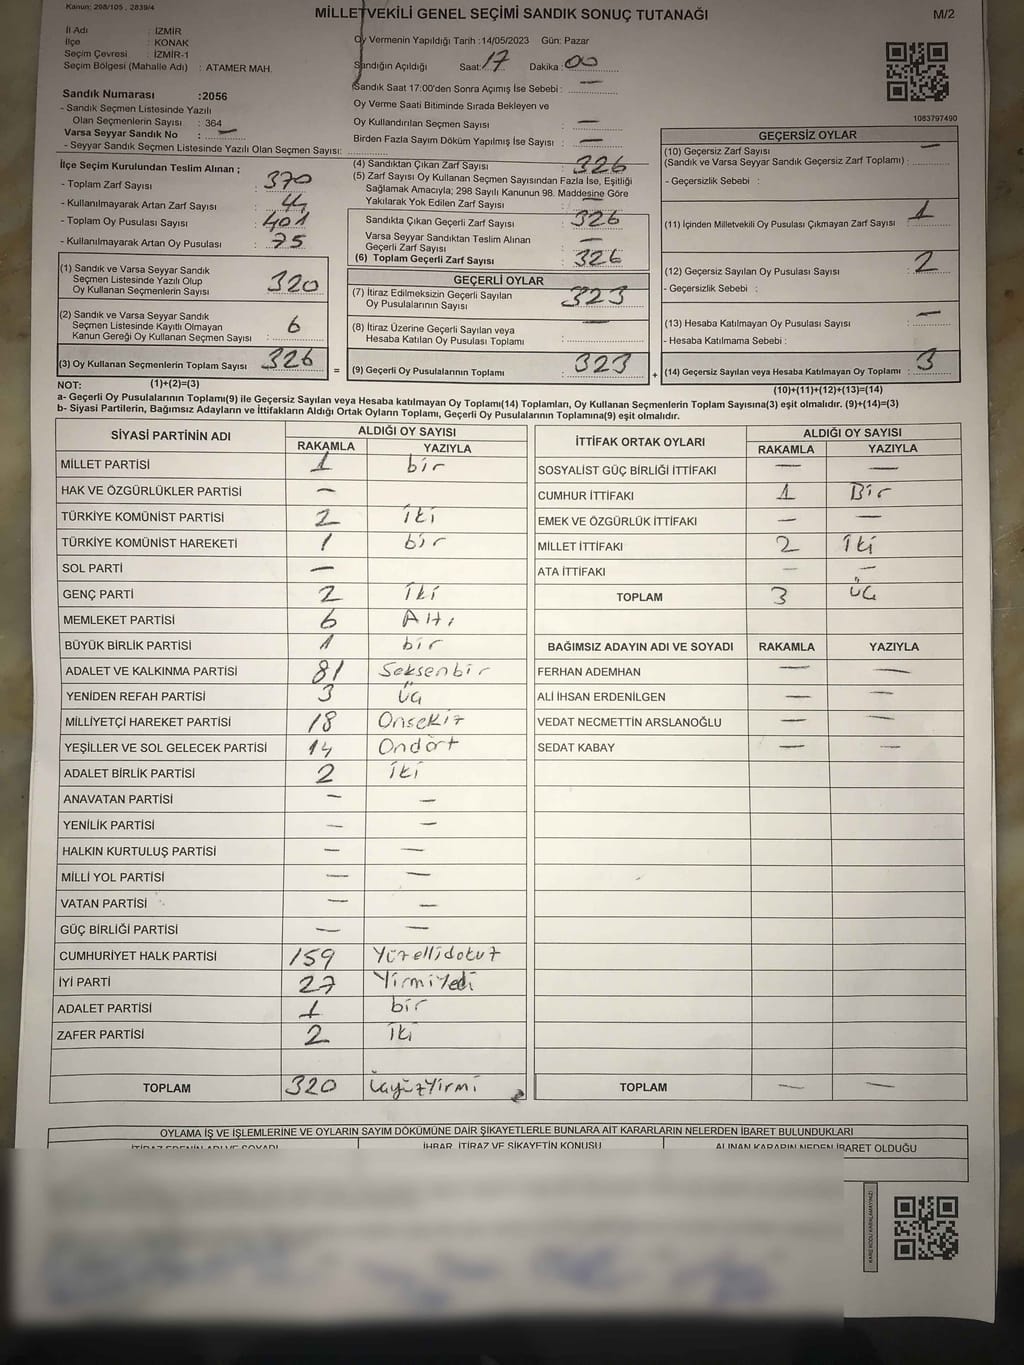 Kanun: 298/105 , 2839/4
MİLLETVEKİLİ GENEL SEÇİMİ SANDIK SONUÇ TUTANAĞI
M/2
İl Adı : İZMİR
İlçe : KONAK
Seçim Çevresi : İZMİR-1
Seçim Bölgesi (Mahalle Adı) : ATAMER MAH.
Oy Vermenin Yapıldığı Tarih :14/05/2023 Gün: Pazar
Sandığın Açıldığı Saat: 17 Dakika : 00
Sandık Saat 17:00'den Sonra Açımış İse Sebebi : —
Oy Verme Saati Bitiminde Sırada Bekleyen ve
Oy Kullandırılan Seçmen Sayısı : —
Birden Fazla Sayım Döküm Yapılmış İse Sayısı : —
1083797490
Sandık Numarası :2056
- Sandık Seçmen Listesinde Yazılı
Olan Seçmenlerin Sayısı : 364
Varsa Seyyar Sandık No : —
- Seyyar Sandık Seçmen Listesinde Yazılı Olan Seçmen Sayısı:
İlçe Seçim Kurulundan Teslim Alınan ;
- Toplam Zarf Sayısı : 370
- Kullanılmayarak Artan Zarf Sayısı : 44
- Toplam Oy Pusulası Sayısı : 401
- Kullanılmayarak Artan Oy Pusulası : 75
(1) Sandık ve Varsa Seyyar Sandık
Seçmen Listesinde Yazılı Olup
Oy Kullanan Seçmenlerin Sayısı : 320
(2) Sandık ve Varsa Seyyar Sandık
Seçmen Listesinde Kayıtlı Olmayan
Kanun Gereği Oy Kullanan Seçmen Sayısı : 6
(3) Oy Kullanan Seçmenlerin Toplam Sayısı : 326
(4) Sandıktan Çıkan Zarf Sayısı : 326
(5) Zarf Sayısı Oy Kullanan Seçmen Sayısından Fazla İse, Eşitliği
Sağlamak Amacıyla; 298 Sayılı Kanunun 98. Maddesine Göre
Yakılarak Yok Edilen Zarf Sayısı : —
Sandıkta Çıkan Geçerli Zarf Sayısı : 326
Varsa Seyyar Sandıktan Teslim Alınan
Geçerli Zarf Sayısı : —
(6) Toplam Geçerli Zarf Sayısı : 326
GEÇERLİ OYLAR
(7) İtiraz Edilmeksizin Geçerli Sayılan
Oy Pusulalarının Sayısı : 323
(8) İtiraz Üzerine Geçerli Sayılan veya
Hesaba Katılan Oy Pusulası Toplamı : —
= (9) Geçerli Oy Pusulalarının Toplamı : 323
GEÇERSİZ OYLAR
(10) Geçersiz Zarf Sayısı
(Sandık ve Varsa Seyyar Sandık Geçersiz Zarf Toplamı) : —
- Geçersizlik Sebebi :
(11) İçinden Milletvekili Oy Pusulası Çıkmayan Zarf Sayısı : 1
(12) Geçersiz Sayılan Oy Pusulası Sayısı : 2
- Geçersizlik Sebebi :
(13) Hesaba Katılmayan Oy Pusulası Sayısı : —
- Hesaba Katılmama Sebebi :
+ (14) Geçersiz Sayılan veya Hesaba Katılmayan Oy Toplamı : 3
NOT: (1)+(2)=(3)
(10)+(11)+(12)+(13)=(14)
a- Geçerli Oy Pusulalarının Toplamı(9) ile Geçersiz Sayılan veya Hesaba katılmayan Oy Toplamı(14) Toplamları, Oy Kullanan Seçmenlerin Toplam Sayısına(3) eşit olmalıdır. (9)+(14)=(3)
b- Siyasi Partilerin, Bağımsız Adayların ve İttifakların Aldığı Ortak Oyların Toplamı, Geçerli Oy Pusulalarının Toplamına(9) eşit olmalıdır.
SİYASİ PARTİNİN ADI ALDIĞI OY SAYISI
RAKAMLA YAZIYLA
MİLLET PARTİSİ 1 bir
HAK VE ÖZGÜRLÜKLER PARTİSİ —
TÜRKİYE KOMÜNİST PARTİSİ 2 iki
TÜRKİYE KOMÜNİST HAREKETİ 1 bir
SOL PARTİ —
GENÇ PARTİ 2 iki
MEMLEKET PARTİSİ 6 Altı
BÜYÜK BİRLİK PARTİSİ 1 bir
ADALET VE KALKINMA PARTİSİ 81 Seksenbir
YENİDEN REFAH PARTİSİ 3 üç
MİLLİYETÇİ HAREKET PARTİSİ 18 Onsekiz
YEŞİLLER VE SOL GELECEK PARTİSİ 14 Ondört
ADALET BİRLİK PARTİSİ 2 iki
ANAVATAN PARTİSİ — —
YENİLİK PARTİSİ — —
HALKIN KURTULUŞ PARTİSİ — —
MİLLİ YOL PARTİSİ — —
VATAN PARTİSİ — —
GÜÇ BİRLİĞİ PARTİSİ — —
CUMHURİYET HALK PARTİSİ 159 Yüzellidokuz
İYİ PARTİ 27 Yirmiyedi
ADALET PARTİSİ 1 bir
ZAFER PARTİSİ 2 iki
TOPLAM 320 üçyüzyirmi
İTTİFAK ORTAK OYLARI ALDIĞI OY SAYISI
RAKAMLA YAZIYLA
SOSYALİST GÜÇ BİRLİĞİ İTTİFAKI — —
CUMHUR İTTİFAKI 1 Bir
EMEK VE ÖZGÜRLÜK İTTİFAKI — —
MİLLET İTTİFAKI 2 iki
ATA İTTİFAKI — —
TOPLAM 3 üç
BAĞIMSIZ ADAYIN ADI VE SOYADI RAKAMLA YAZIYLA
FERHAN ADEMHAN — —
ALİ İHSAN ERDENİLGEN — —
VEDAT NECMETTİN ARSLANOĞLU — —
SEDAT KABAY — —
TOPLAM — —
OYLAMA İŞ VE İŞLEMLERİNE VE OYLARIN SAYIM DÖKÜMÜNE DAİR ŞİKAYETLERLE BUNLARA AİT KARARLARIN NELERDEN İBARET BULUNDUKLARI
İTİRAZ EDENİN ADI VE SOYADI İHBAR, İTİRAZ VE ŞİKAYETİN KONUSU ALINAN KARARIN NEDEN İBARET OLDUĞU
KARE KODU KARALAMAYINIZ!